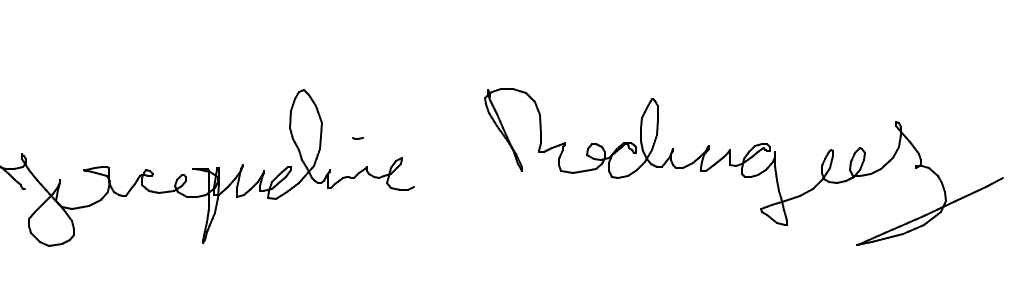 Jacqueline Rodriguez